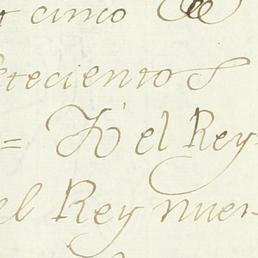 cinco de
etecientos
= Yo el Rey=
el Rey nues-